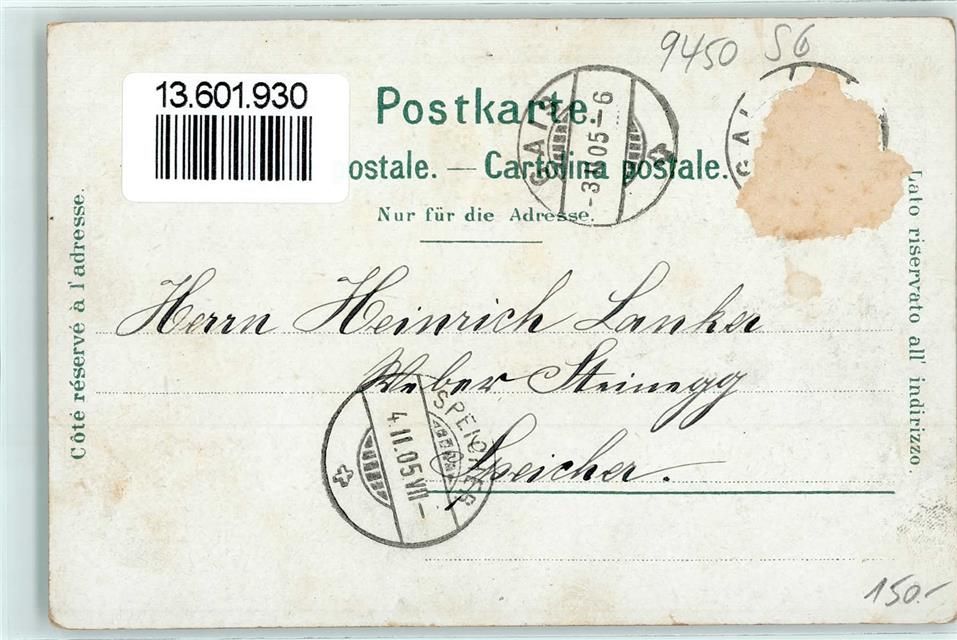 9450 S6
13.601.930
Postkarte.
ostale. — Cartolina postale.
Nur für die Adresse.
GAIS
-3.II.05.-6
GAI
Côté réservé à l'adresse.
Lato riservato all' indirizzo.
Herrn Heinrich Lanker
Weber Steinegg
Speicher.
SPEICHER
4.II.05.VII-
150.-